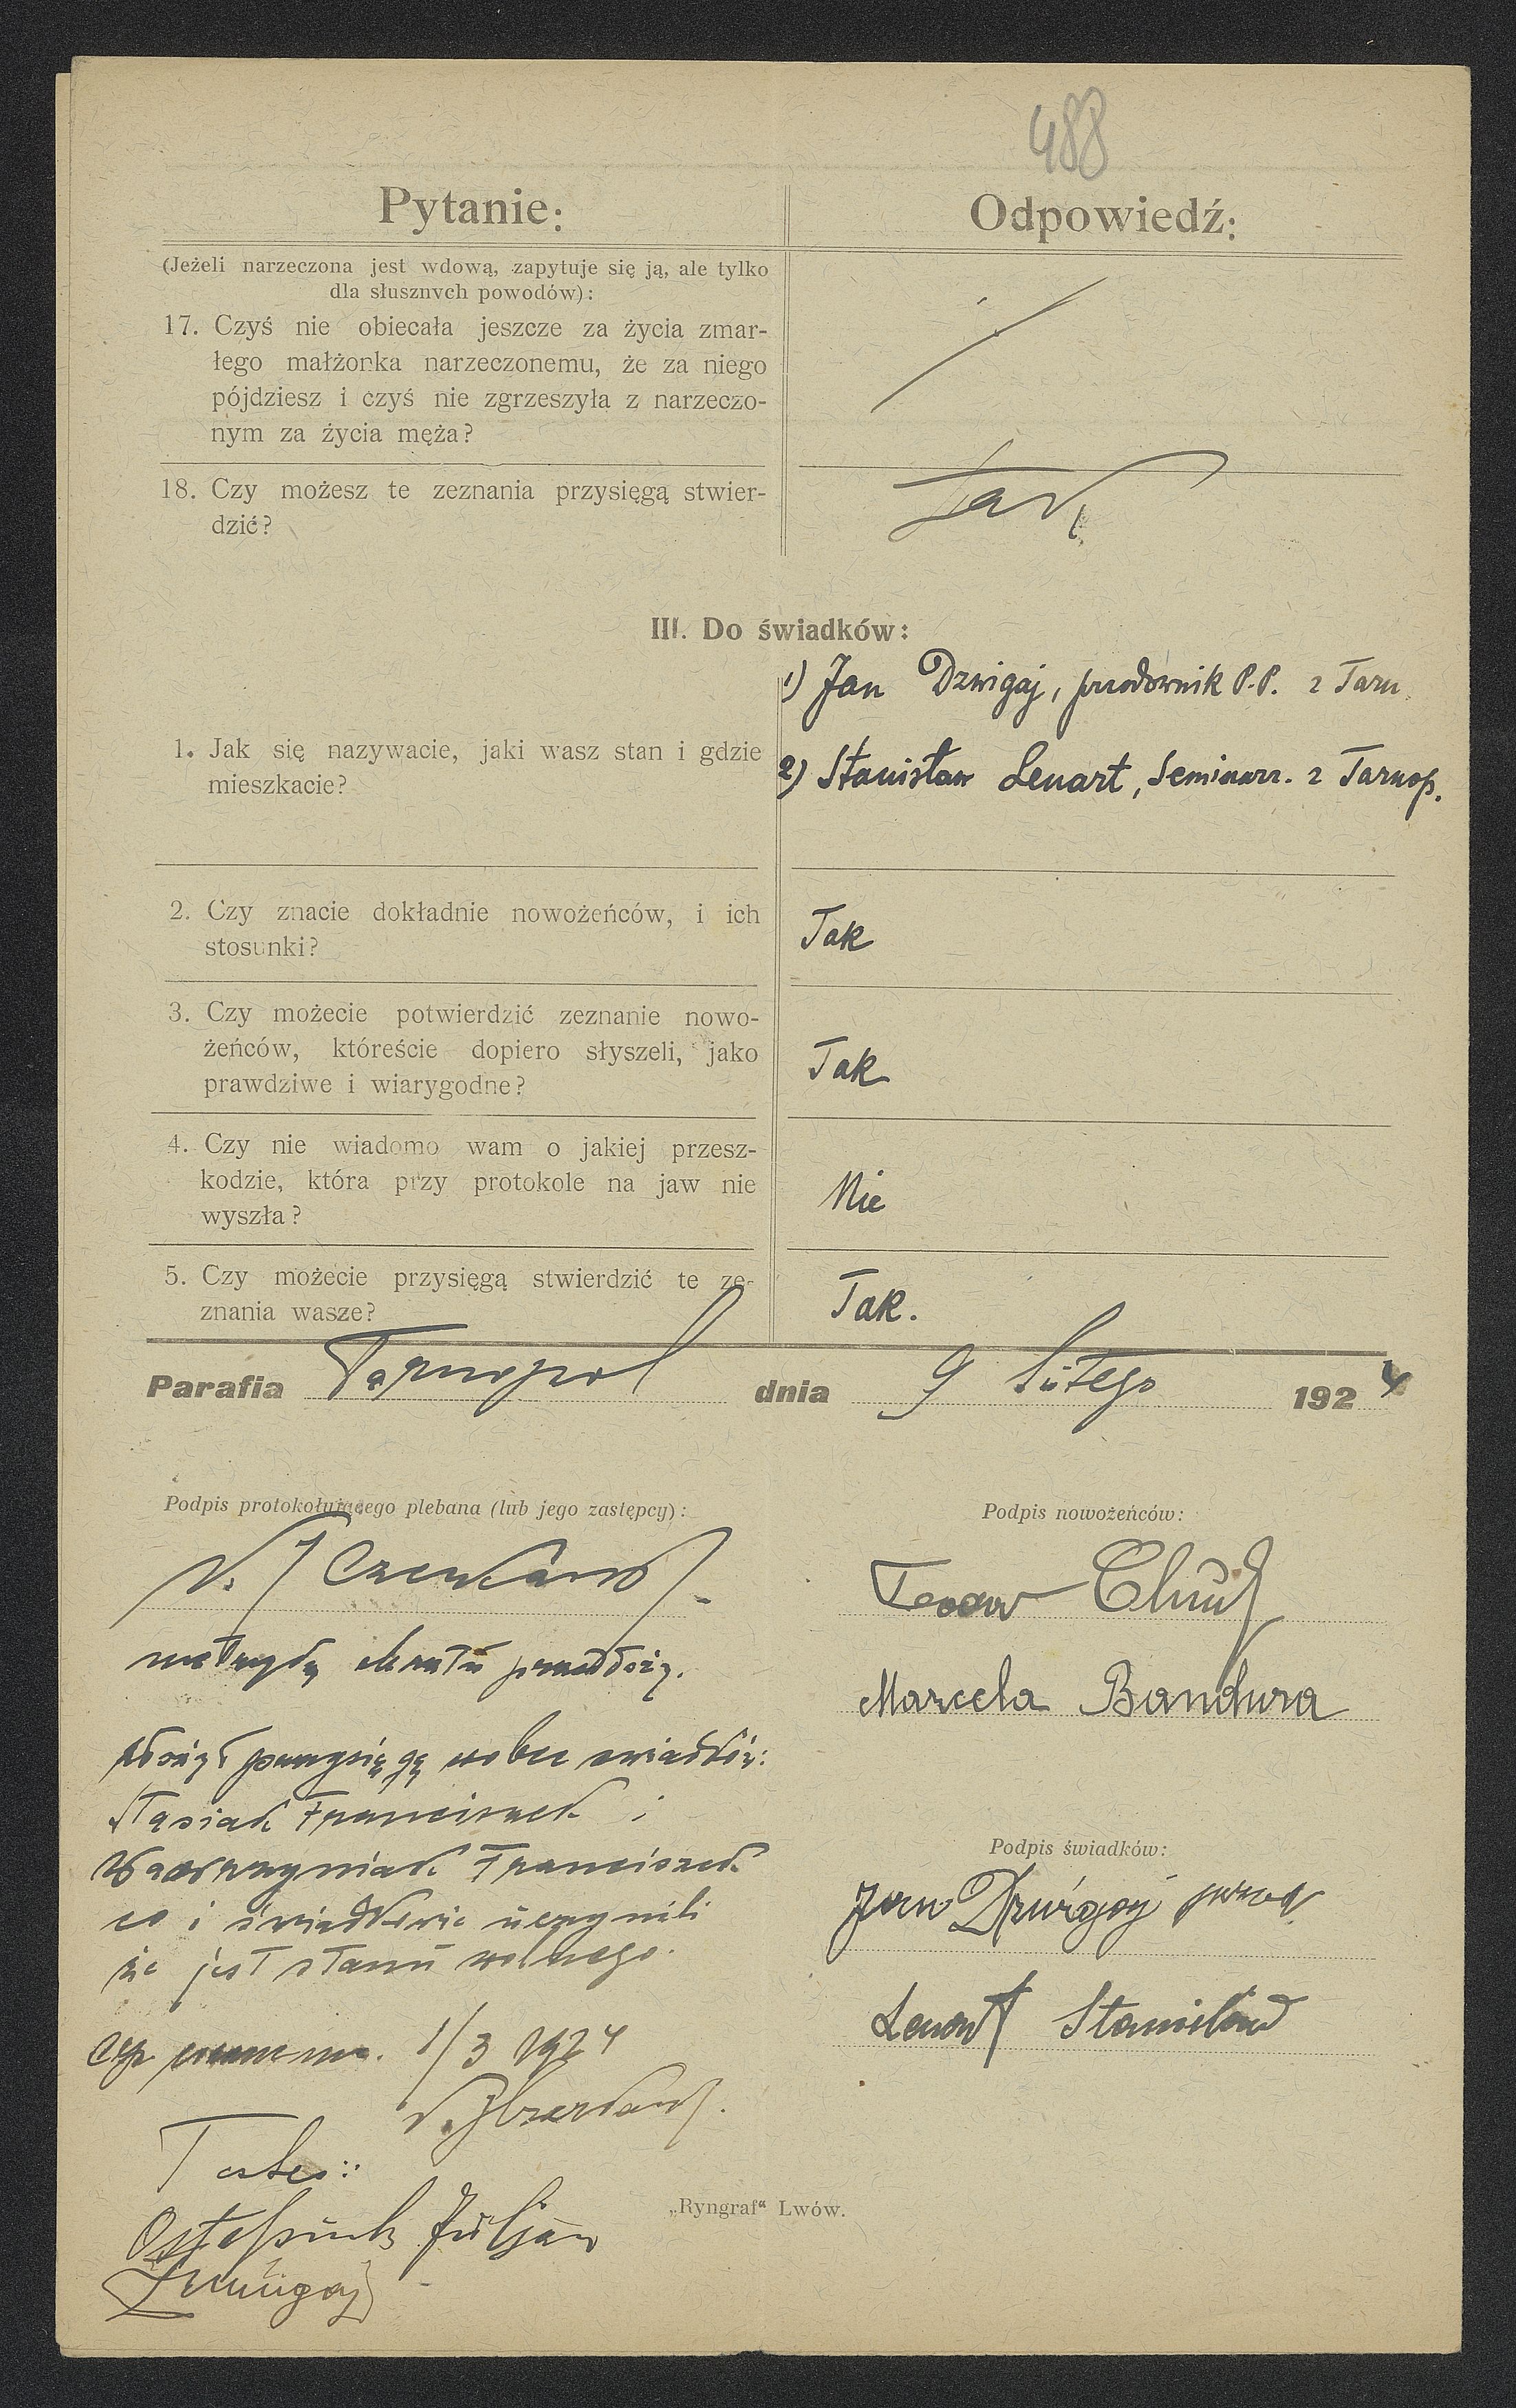 488
Pytanie:
Odpowiedź:
(Jeżeli narzeczona jest wdową, zapytuje się ją, ale tylko
dla słusznych powodów):
17. Czyś nie obiecała jeszcze za życia zmar-
łego małżonka narzeczonemu, że za niego
pójdziesz i czyś nie zgrzeszyła z narzeczo-
nym za życia męża?
18. Czy możesz te zeznania przysięgą stwier-
dzić?
Tak
III. Do świadków:
1. Jak się nazywacie, jaki wasz stan i gdzie
mieszkacie?
1) Jan Dzwigaj, przodownik P.P. z Tarn.
2) Stanisław Lenart, Seminarz. z Tarnop.
2. Czy znacie dokładnie nowożeńców, i ich
stosunki?
Tak
3. Czy możecie potwierdzić zeznanie nowo-
żeńców, któreście dopiero słyszeli, jako
prawdziwe i wiarygodne?
Tak
4. Czy nie wiadomo wam o jakiej przesz-
kodzie, która przy protokole na jaw nie
wyszła?
Nie
5. Czy możecie przysięgą stwierdzić te ze-
znania wasze?
Tak.
Parafia Tarnopol dnia 9 lutego 1924
Podpis protokołującego plebana (lub jego zastępcy):
metrykę chrztu przedłoży.
złożył przysięgę wobec świadków:
Stasiak Franciszek i
Wawrzyniak Franciszek
co i świadkowie uczynili
że jest stanu wolnego.
1/3 1924
Testes:
Juljan
Podpis nowożeńców:
Teodor
Marcela Bandura
Podpis świadków:
Jan Dzwigaj przod.
Lenart Stanisław
„Ryngraf“ Lwów.